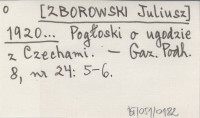 o
[ZBOROWSKI Juliusz]
1920... Pogłoski o ugodzie
z Czechami. — Gaz. Podh.
8, nr 24: 5-6.